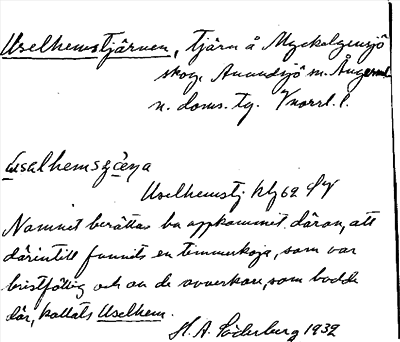 Uselhemstjärnen, tjärn å Myckelgensjö
skog, Anundsjö sn. Ångerml.
n. doms. tg. Vnorrl. l.
Uselhemstj. blg 62
Namnet berättas ha uppkommit däraf, att
därintill funnits en timmerkoja, som var
bristfällig och av de avverkare, som bodde
där, kallats Uselhem.
H. A. Söderberg 1932